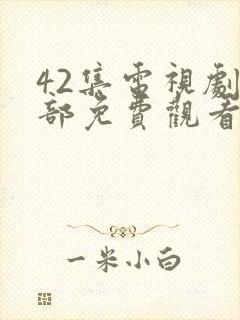 42集電視劇
部免費觀看
一米小白